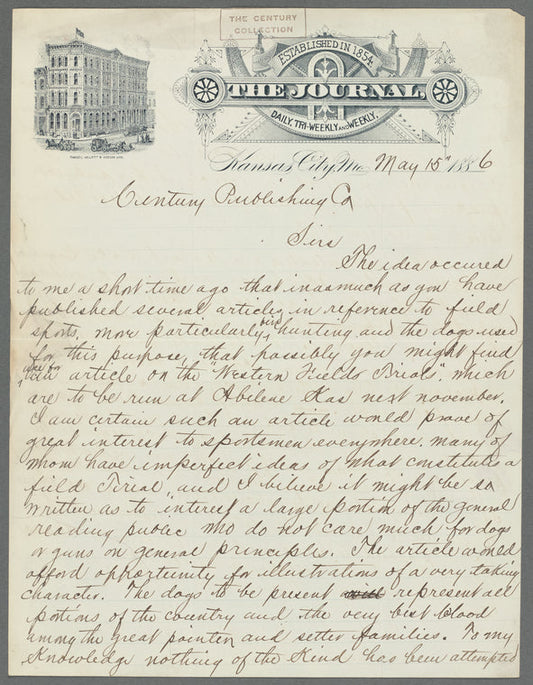 THE CENTURY
COLLECTION
ESTABLISHED IN 1854.
THE JOURNAL,
DAILY, TRI-WEEKLY, AND WEEKLY.
Kansas City, Mo. May 15" 1886
Century Publishing Co
Sirs
The idea occured
to me a short time ago that inasmuch as you have
published several articles in reference to field
sports, more particularly bird hunting and the dogs used
for this purpose, that possibly you might find
use for an article on the "Western Fields Trials", which
are to be run at Abilene Kas next november.
I am certain such an article would prove of
great interest to sportsmen everywhere, many of
whom have imperfect ideas of what constitutes a
field Trial, and I believe it might be so
written as to interest a large portion of the general
reading public who do not care much for dogs
or guns on general principles. The article would
afford opportunity for illustrations of a very taking
character. The dogs to be present will represent all
potions of the country and the very best blood
among the great pointer and setter families. To my
Knowledge nothing of the Kind has been attempted